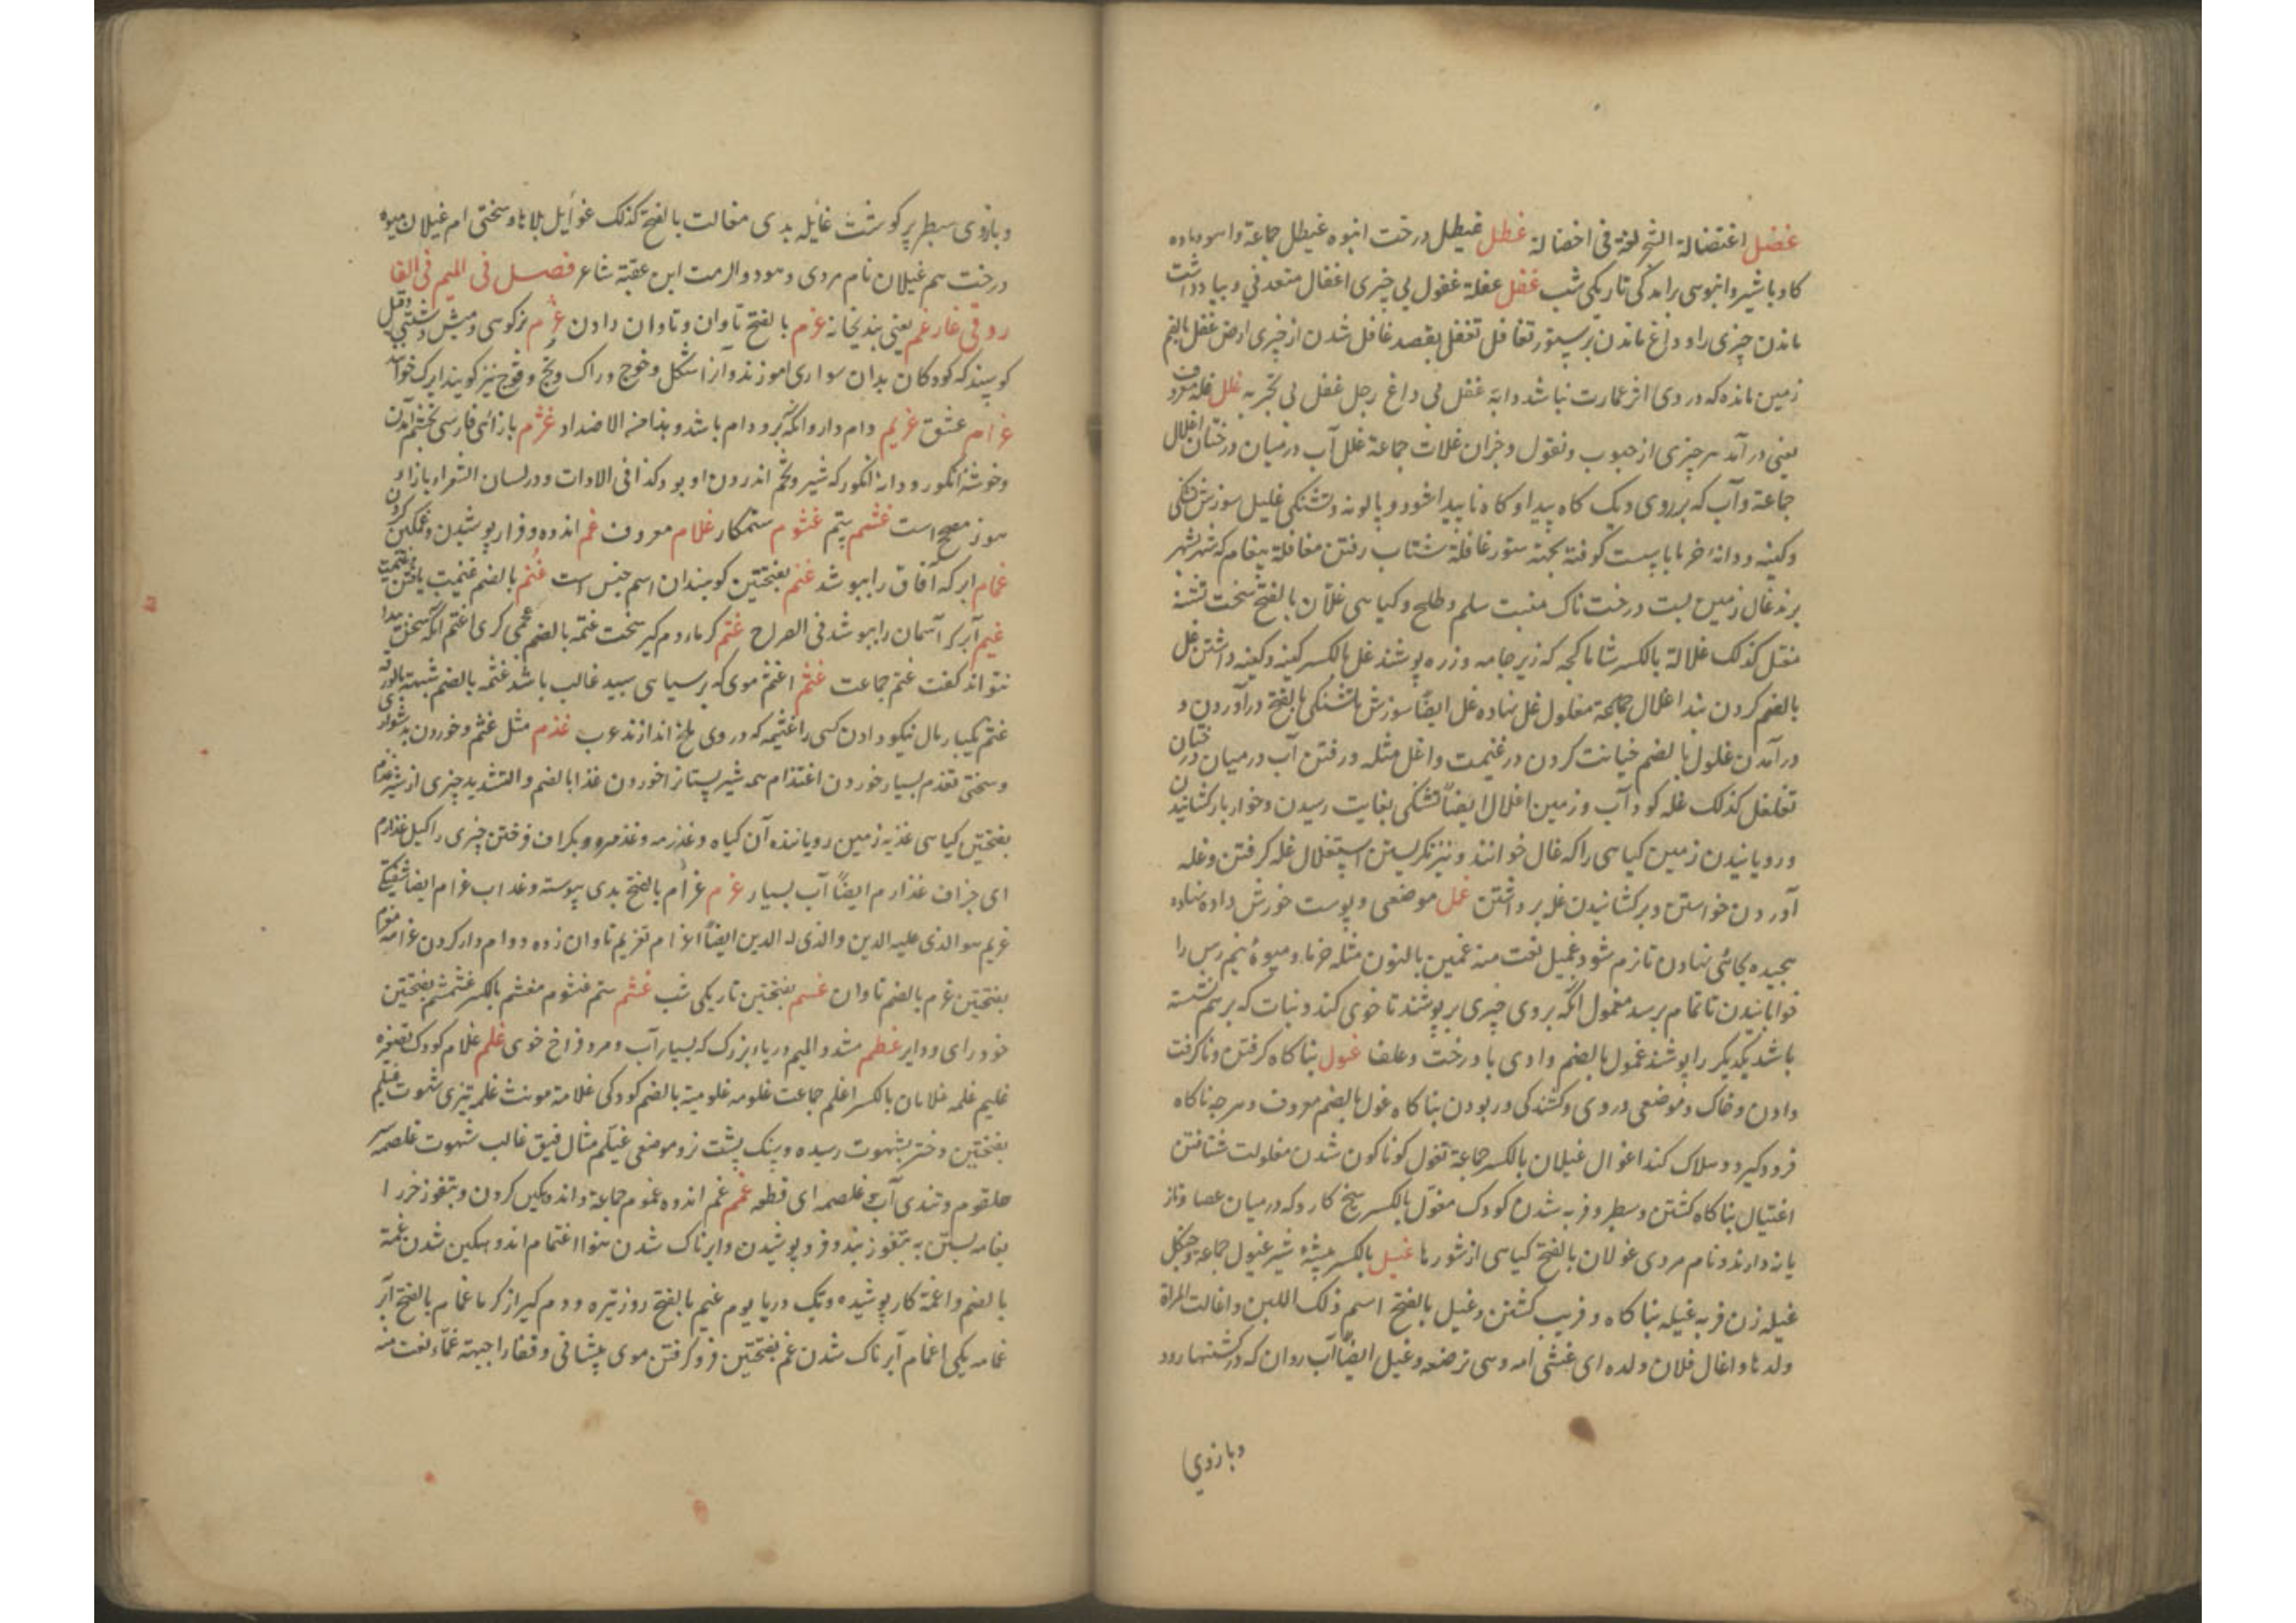 غضل اغتضالة الشجر لغة فی اخضالة غطل غیطل درخت انبوه غیطل جماعة واهو وماده
کاو با شیر وانبوهی رانگی تاریکی شب غفل غفلة غفول بی خبری اغفال متعد فی وبیا دداشت
ماندن چیزی را و داغ ماندن بر ستور تغافل تغفل بقصد غافل شدن از چیزی ارض غفل بالضم
زمین مانده که در وی اثر عمارت نباشد دابة غفل بی داغ رجل غفل بی تجربه غلل غله معروف
یعنی در آمد هر چیزی از حبوب ونقول وجزان غلات جماعة غلل آب در میان درختان اغلال
جماعة وآب که بر روی ریک کاه پیدا و کاه ناپیدا شود و پالونه وتشنکی غلیل سوزش تشنکی
وکینه ودانه خرما باپست کوفته بجهة ستور غلغلة شتاب رفتن مغلغلة پیغام که شهر بشهر
برند غال زمین پست درخت ناک منبت سلم وطلح وکیاهی غلان بالفتح سخت تشنه
مغتل کذلک غلالة بالکسر شاماکچه که زیر جامه وزره پوشند غل بالکسر کینه وکینه داشتن غل
بالضم کردن بند اغلال جماعة مغلول غل نهاده غل ایضاً سوزش تشنکی بالفتح درآوردن و
درآمدن غلول بالضم خیانت کردن در غنیمت واغل مثله ورفتن آب در میان درختان
تغلغل کذلک غله کود آب وزمین اغلال ایضاً تشنکی بغایت رسیدن وخوار بار کشانیدن
ورویانیدن زمین کیاهی را که غال خوانند ونیز نکریستن استغلال غله کرفتن وغله
آوردن خواستن وبرکشانیدن غله برداشتن غمل موضعی وپوست خورش داده نهاده
پیچیده بجائی نهادن تا نرم شود غمیل نعت منه غمین بالنون مثله خرما ومیوۀ نیم رس را
خوابانیدن تا تمام برسد مغمول انکه بر وی چیزی بر پوشند تا خوی کند ونبات که بر هم نشسته
باشد یکدیکر را پوشند غمول بالضم وادی با درخت وعلف غول بناکاه کرفتن وناکرفت
دادن وخاک وموضعی دروی وکشندکی وربودن بناکاه غول بالضم معروف وهرچه ناکاه
فرو کیرد وهلاک کند اغوال غیلان بالکسر جماعة تغول کوناکون شدن مغاولت شتافتن
اغتیال بناکاه کشتن وسطبر وفربه شدن کودک مغول بالکسر سیخ کارد که در میان عصا وتاز
یانه دارند ونام مردی غولان بالفتح کیاهی از شورها غیل بالکسر بیشۀ شیر غیول جماعة وجنکل
غیله زن فربه غیله بناکاه وفریب کشتن وغیل بالفتح اسم ذلک اللبن واغالت المراة
ولدها واغال فلان ولده ای غشی امه وهی ترضعه وغیل ایضاً آب روان که در کشتها رود
وبازوی
وبازوی سطبر پر کوشت غایله بدی مغالت بالفتح کذلک غوایل بلاها وسختی ام غیلان میوه
درخت سم غیلان نام مردی وهو ذو الرمت ابن عقبة شاعر فصل فی المیم فی الفا
رو فی غارغم یعنی بندیخانه غرم بالفتح تاوان وتاوان دادن غرم بزکوهی ومیش دشتی وقیل
کوسپند که کودکان بدان سواری اموزند وآنرا شکل وخوچ وراک وبج وقوچ نیز کویند
غرام عشق غریم دام دار وانکه برو دام باشد وهذا من الاضداد غژم بازای فارسی بخشم آمدن
وخوشۀ انکور ودانه انکور که شیر وتخم اندرون او بود کذا فی الادات ودر لسان الشعرا بازاء
هوز مصحح است غشم ستم غشوم ستمکار غلام معروف غم اندوه وفرا پوشیدن وغمکین کردن
غمام ابر که آفاق را بپوشد غنم بفتحتین کوسپندان اسم جنس است غنم بالضم غنیمت یافتن
غیم ابر که آسمان را بپوشد فی الصراح غتم کرماء دم کیر سخت غتمه بالضم عجمی کری اغتم انکه سخن پیدا
نتواند کفت غتم جماعت غثم اغثم موی که بر سیاهی سپید غالب باشد غثمه بالضم شبهة بالورقه
غثم یکبار مال نیکو دادن کسی را غثیمه که در وی ملخ اندازند عرب غذم مثل غثم وخوردن بدشواری
وسختی تغذم بسیار خوردن اغتذام همه شیر پستان را خوردن غذا بالضم والتشدید چیزی از شیر غذم
بفتحتین کیاهی غذیه زمین رویاننده آن کیاه وغذرمه وغذمره وبکراف فروختن چیزی را کیل غذارم
ای جزاف غذارم ایضاً آب بسیار غرم غرام بالفتح بدی پیوسته وعذاب غرام ایضاً شیفتکی
غریم هو الذی علیه الدین والذی له الدین ایضاً اغرام تغریم تاوان زده ووام دار کردن غرامة مغرم
بفتحتین غرم بالضم تاوان غسم بفتحتین تاریکی شب غشم ستم غشوم مغشم بالکسر غشمشم بفتحتین
خود رای ودلیر غطم مشدد المیم دریاء بزرک که بسیار آب ومرد فراخ خوی غلم غلام کودک تصغیره
غلیم غلمه غلمان بالکسر اغلم جماعت غلومه غلومیة بالضم کودکی غلامة مونث غلمه تیزی شهوت غیلم
بفتحتین ودختر بشهوت رسیده وسنک پشت نر وموضعی غیلم مثال فیق غالب شهوت غلصمه سر
حلقوم وتندی آب غلصمه ای قطعه غمم غم اندوه غموم جماعة واندوهکین کردن وبتفوز خر را
بغامه بستن به بتفوز بند وفرو پوشیدن وابرناک شدن هوا اغتمام اندوهکین شدن غمة
بالضم واغمة کار پوشیده وتک دریا یوم غیم بالفتح روز تیره ودم کیر از کرما غمام بالفتح ابر
غمامه یکی اغمام ابرناک شدن غم بفتحتین فرو کرفتن موی پیشانی وقفا را جبهة غماء نعت منه